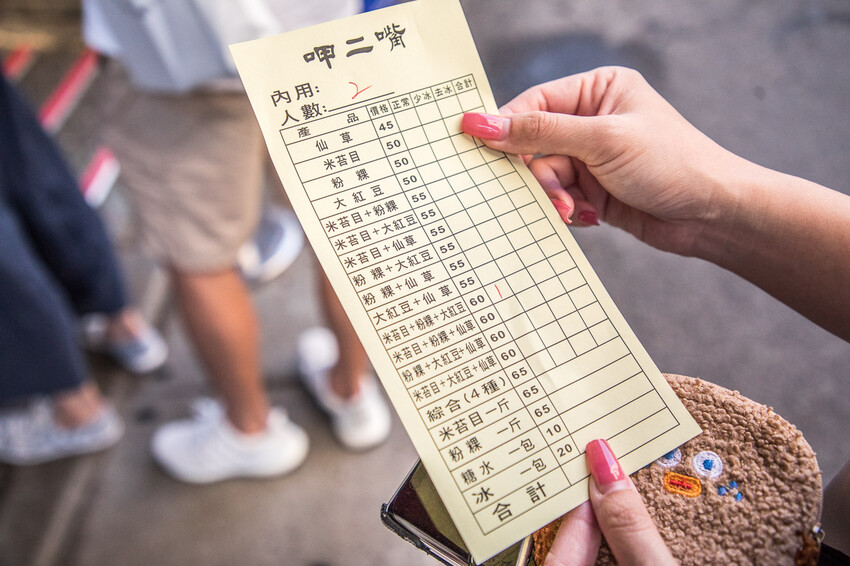 呷二嘴
內用:
人數: 2
產品 價格 正常 少冰 去冰 合計
仙草 45
米苔目 50
粉粿 50
大紅豆 50
米苔目+粉粿 55
米苔目+大紅豆 55
米苔目+仙草 55
粉粿+大紅豆 55
粉粿+仙草 55
大紅豆+仙草 55
米苔目+粉粿+大紅豆 60 1
米苔目+粉粿+仙草 60
粉粿+大紅豆+仙草 60
米苔目+大紅豆+仙草 60
綜合(4種) 65
米苔目一斤 65
粉粿一斤 65
糖水一包 10
冰一包 20
合計